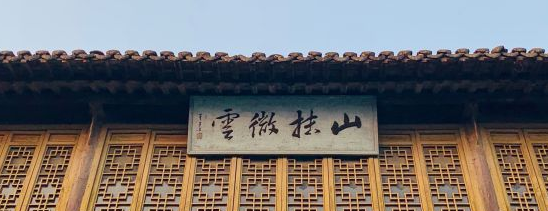 山抹微雲